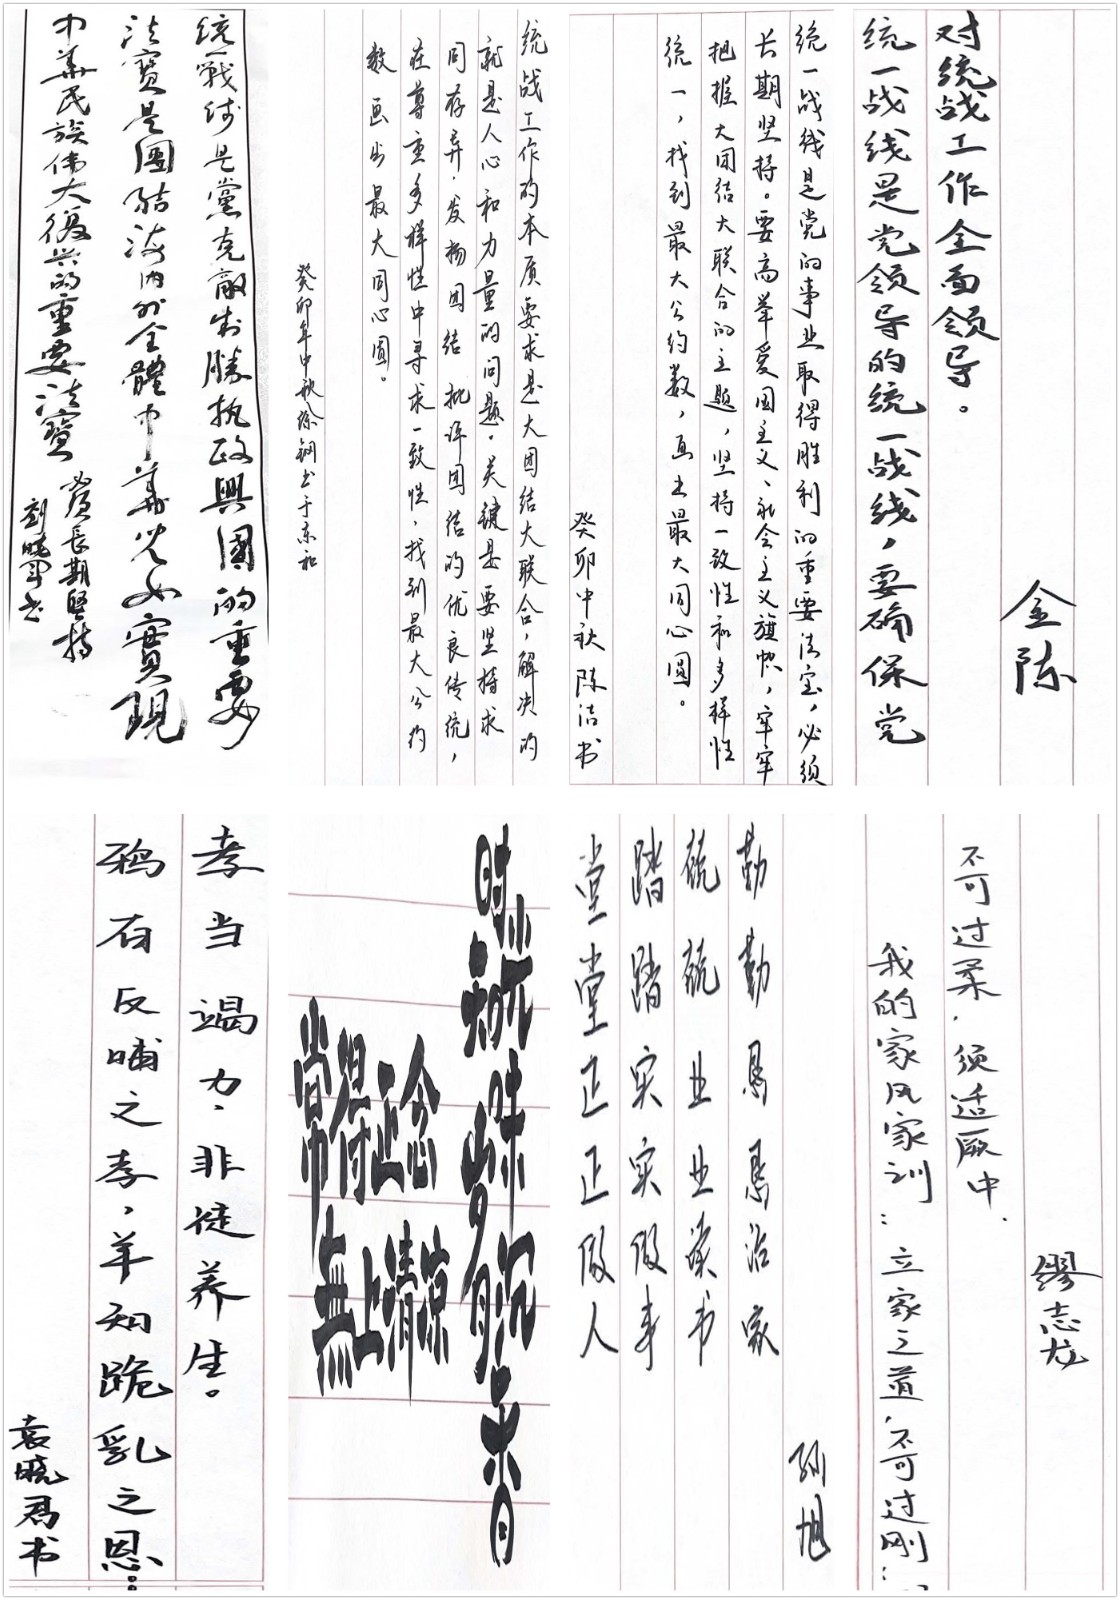 统一戰线是黨克敵制勝执政興國的重要
法寶是團結海内外全體中華兒女實現
中華民族伟大復興的重要法寶
必须長期堅持
刘晓軍书
统战工作的本质要求是大团结大联合,解决的
就是人心和力量的问题。关键是要坚持求
同存异,发扬团结 批评团结的优良传统,
在尊重多样性中寻求一致性,找到最大公约
数 画出最大同心圆。
癸卯年中秋徐钢书于东和
统一战线是党的事业取得胜利的重要法宝,必须
长期坚持。要高举爱国主义、社会主义旗帜,牢牢
把握大团结大联合的主题,坚持一致性和多样性
统一,找到最大公约数,画出最大同心圆。
癸卯中秋 陈洁书
统一战线是党领导的统一战线,要确保党
对统战工作全面领导。
金陈
孝当竭力,非徒养生。
鸦有反哺之孝,羊知跪乳之恩…
袁晓君书
常得正念
無上清凉
勤勤恳恳治家
兢兢业业读书
踏踏实实做事
堂堂正正做人
孙旭
我的家风家训:立家之道,不可过刚,
不可过柔,须适厥中.
缪志龙